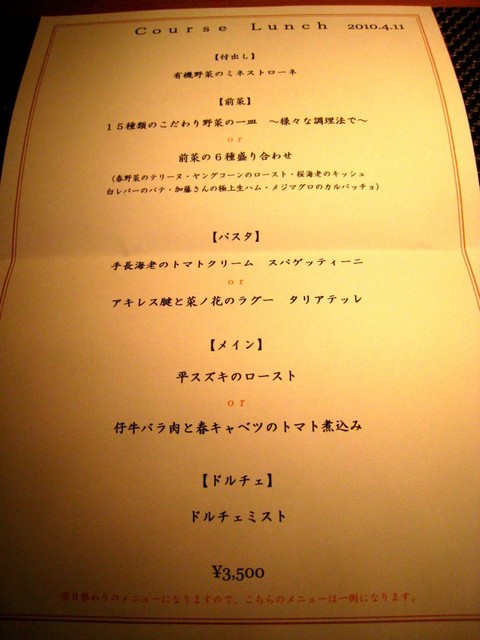 Course Lunch 2010.4.11
【付出し】
有機野菜のミネストローネ
【前菜】
15種類のこだわり野菜の一皿 ～様々な調理法で～
or
前菜の6種盛り合わせ
(春野菜のテリーヌ・ヤングコーンのロースト・桜海老のキッシュ
白レバーのパテ・加藤さんの極上生ハム・メジマグロのカルパッチョ)
【パスタ】
手長海老のトマトクリーム スパゲッティーニ
or
アキレス腱と菜ノ花のラグー タリアテッレ
【メイン】
平スズキのロースト
or
仔牛バラ肉と春キャベツのトマト煮込み
【ドルチェ】
ドルチェミスト
¥3,500
※日替わりのメニューになりますので、こちらのメニューは一例になります。